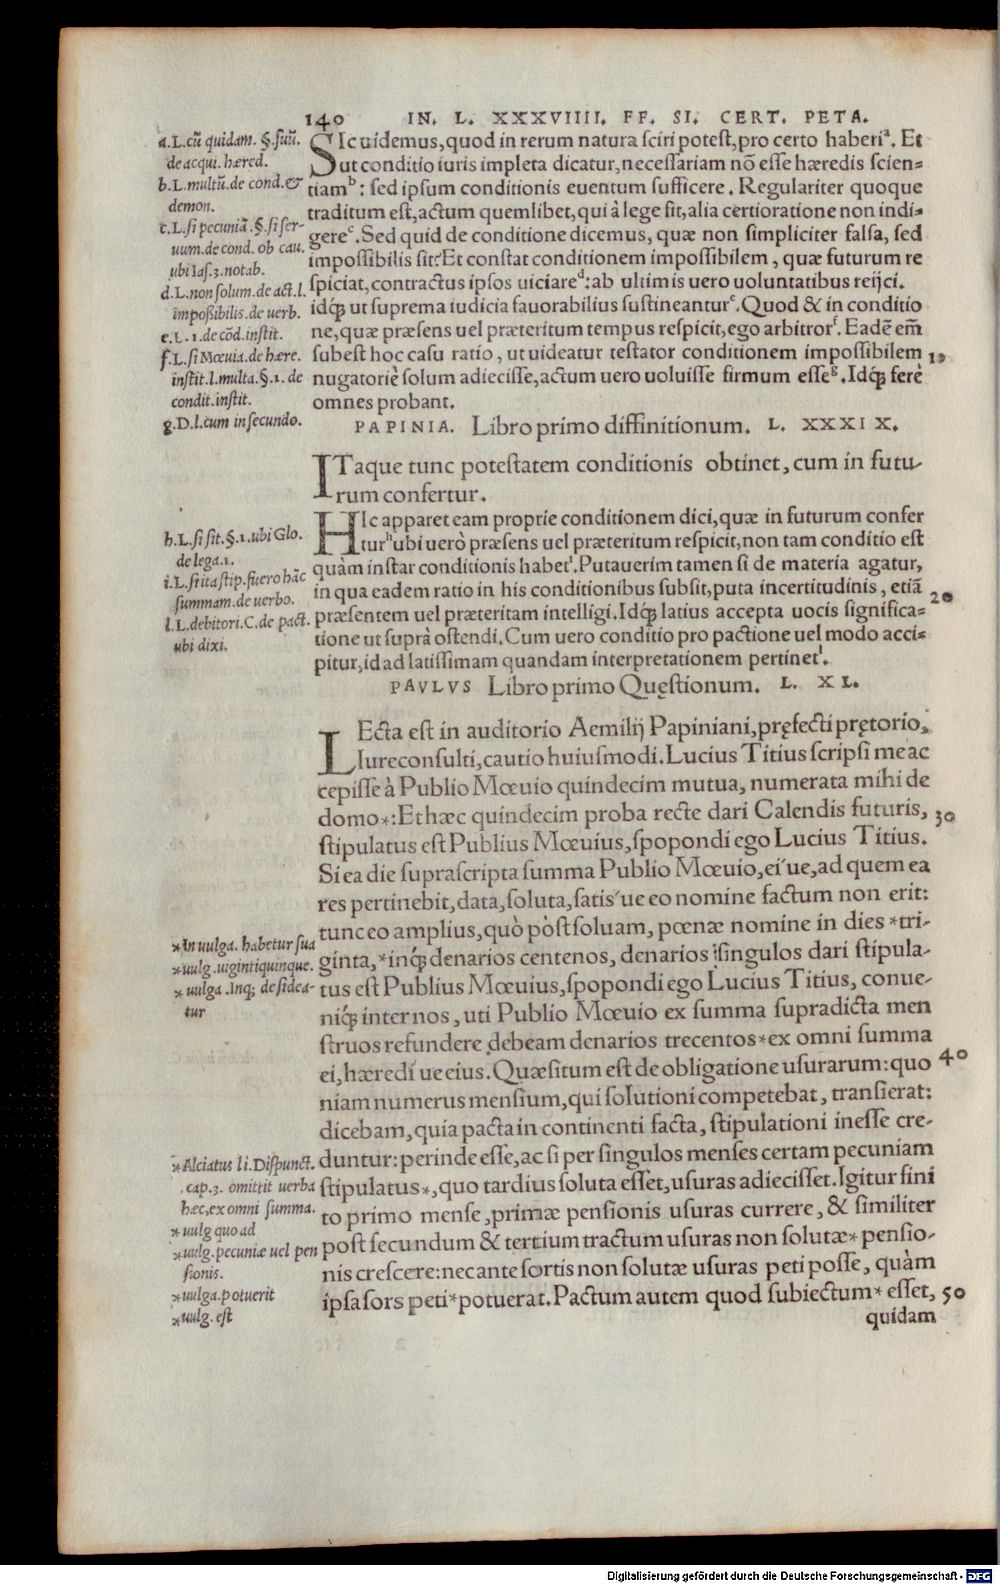 140 IN. L. XXXVIIII. FF. SI. CERT. PETA.
SIc uidemus, quod in rerum natura sciri potest, pro certo haberiᵃ. Et
ut conditio iuris impleta dicatur, necessariam nō esse hæredis scien-
tiamᵇ: sed ipsum conditionis euentum sufficere. Regulariter quoque
traditum est, actum quemlibet, qui à lege fit, alia certioratione non indi-
gereᶜ. Sed quid de conditione dicemus, quæ non simpliciter falsa, sed
impossibilis sit? Et constat conditionem impossibilem, quæ futurum re
spiciat, contractus ipsos uiciareᵈ: ab ultimis uero uoluntatibus reijci.
idq́; ut suprema iudicia fauorabilius sustineanturᵉ. Quod & in conditio
ne, quæ præsens uel præteritum tempus respicit, ego arbitrorᶠ. Eadē em̄
subest hoc casu ratio, ut uideatur testator conditionem impossibilem
nugatoriè solum adiecisse, actum uero uoluisse firmum esseᵍ. Idq́; ferè
omnes probant.
a. L. cū quidam. §. suū.
de acqui. hæred.
b. L. multū. de cond. &
demon.
c. L. si pecuniā. §. si ser-
uum. de cond. ob cau.
ubi Ias. 3. notab.
d. L. non solum. de act. l.
impoßibilis. de uerb.
e. L. 1. de cōd. instit.
f. L. si Mœuia. de hære.
instit. l. multa. §. 1. de
condit. instit.
g. D. l. cum in secundo.
10
PAPINIA. Libro primo diffinitionum. L. XXXIX.
ITaque tunc potestatem conditionis obtinet, cum in futu-
rum confertur.
HIc apparet eam proprie conditionem dici, quæ in futurum confer
turʰ ubi uerò præsens uel præteritum respicit, non tam conditio est
quàm instar conditionis habetⁱ. Putauerim tamen si de materia agatur,
in qua eadem ratio in his conditionibus subsit, puta incertitudinis, etiā
præsentem uel præteritam intelligi. Idq́; latius accepta uocis significa-
tione ut suprà ostendi. Cum uero conditio pro pactione uel modo acci-
pitur, id ad latissimam quandam interpretationem pertinetˡ.
h. L. si sit. §. 1. ubi Glo.
de lega. 1.
i. L. si ita stip. fuero hāc
summam. de uerbo.
l. L. debitori. C. de pact.
ubi dixi.
20
PAVLVS Libro primo Quęstionum. L. XL.
LEcta est in auditorio Aemilij Papiniani, pręfecti prętorio,
Iureconsulti, cautio huiusmodi. Lucius Titius scripsi me ac
cepisse à Publio Mœuio quindecim mutua, numerata mihi de
domo*: Et hæc quindecim proba recte dari Calendis futuris,
stipulatus est Publius Mœuius, spopondi ego Lucius Titius.
Si ea die suprascripta summa Publio Mœuio, ei´ue, ad quem ea
res pertinebit, data, soluta, satis´ue eo nomine factum non erit:
tunc eo amplius, quò pòst soluam, pœnæ nomine in dies *tri-
ginta, *inq́; denarios centenos, denarios singulos dari stipula-
tus est Publius Mœuius, spopondi ego Lucius Titius, conue-
niq́; inter nos, uti Publio Mœuio ex summa supradicta men
struos refundere debeam denarios trecentos *ex omni summa
ei, hæredi´ue eius. Quæsitum est de obligatione usurarum: quo
niam numerus mensium, qui solutioni competebat, transierat:
dicebam, quia pacta in continenti facta, stipulationi inesse cre-
duntur: perinde esse, ac si per singulos menses certam pecuniam
stipulatus*, quo tardius soluta esset, usuras adiecisset. Igitur fini
to primo mense, primæ pensionis usuras currere, & similiter
post secundum & tertium tractum usuras non solutæ* pensio-
nis crescere: nec ante sortis non solutæ usuras peti posse, quàm
ipsa sors peti *potuerat. Pactum autem quod subiectum* esset,
quidam
30
40
50
*In uulga. habetur sua
*uulg. uigintiquinque.
*uulga. Inq; desidea-
tur
*Alciatus li. Dispunct.
cap. 3. omittit uerba
hæc, ex omni summa.
*uulg quo ad
*uulg. pecuniæ uel pen
sionis.
*uulga. potuerit
*uulg. est
Digitalisierung gefördert durch die Deutsche Forschungsgemeinschaft - DFG